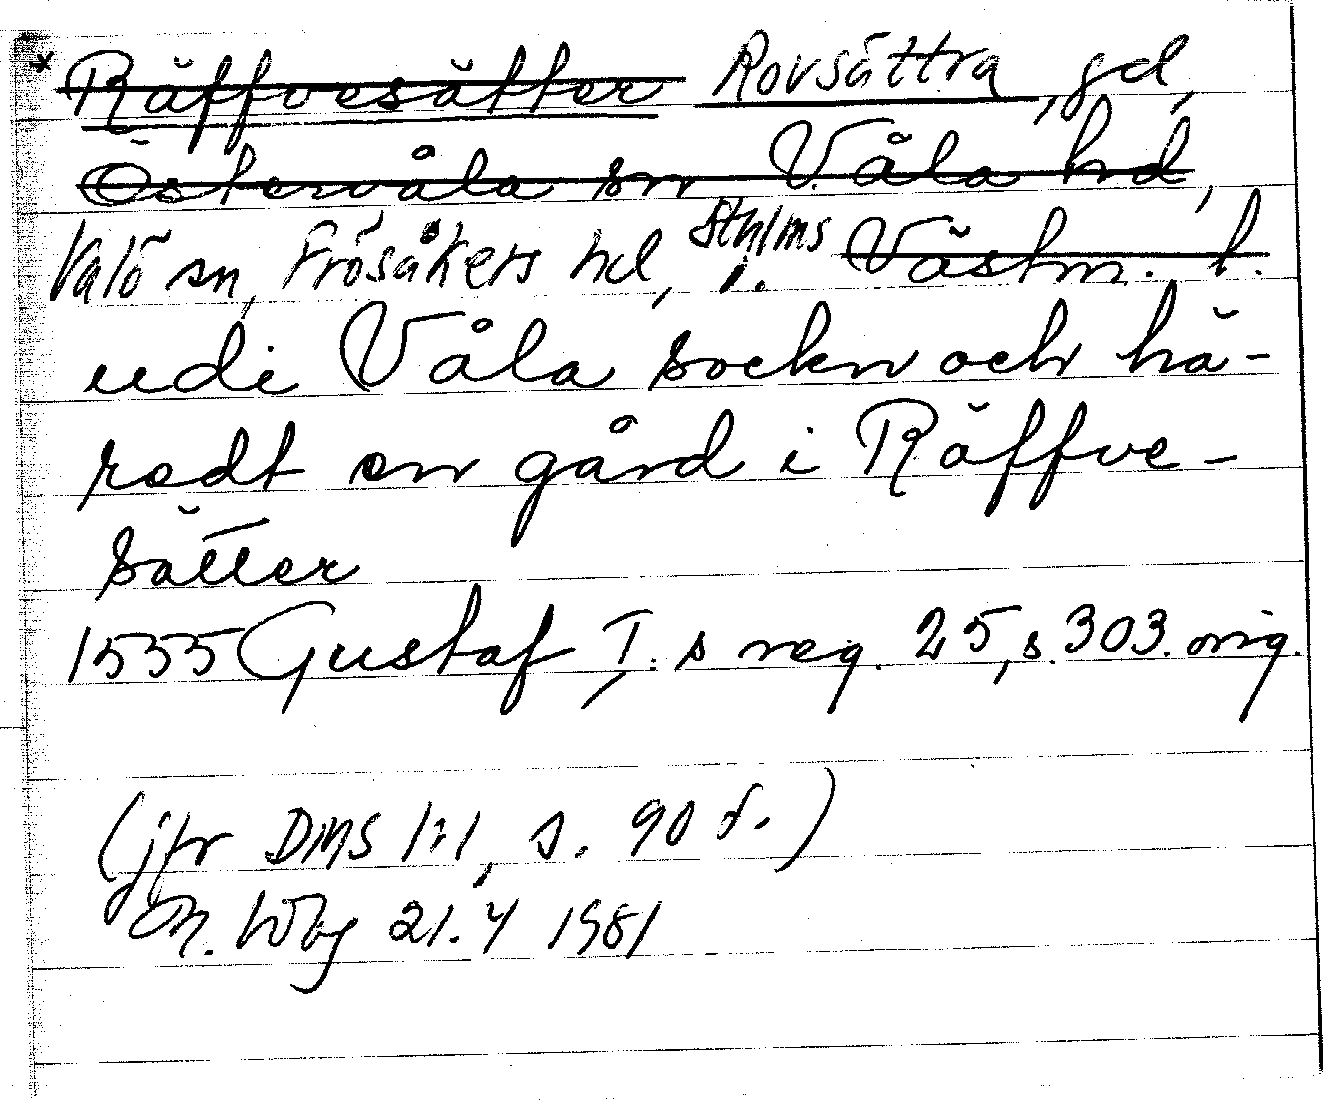 x Räffvesätter Rovsättra, gd,
Östervåla sn Våla hd,
Valö sn, Frösåkers hd, Sthlms l. Västm. l.
udi Våla sockn och hä-
redt en gård i Räffve-
sätter
1535 Gustaf I:s reg. 25, s. 303. orig.
(jfr DMS 1:1, s. 90 f.)
M. Wbg 21.4 1981